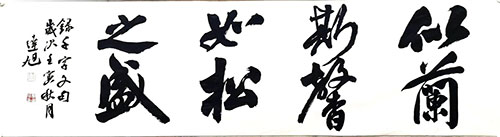 似蘭
斯馨
如松
之盛
錄千字文句
歲次壬寅秋月